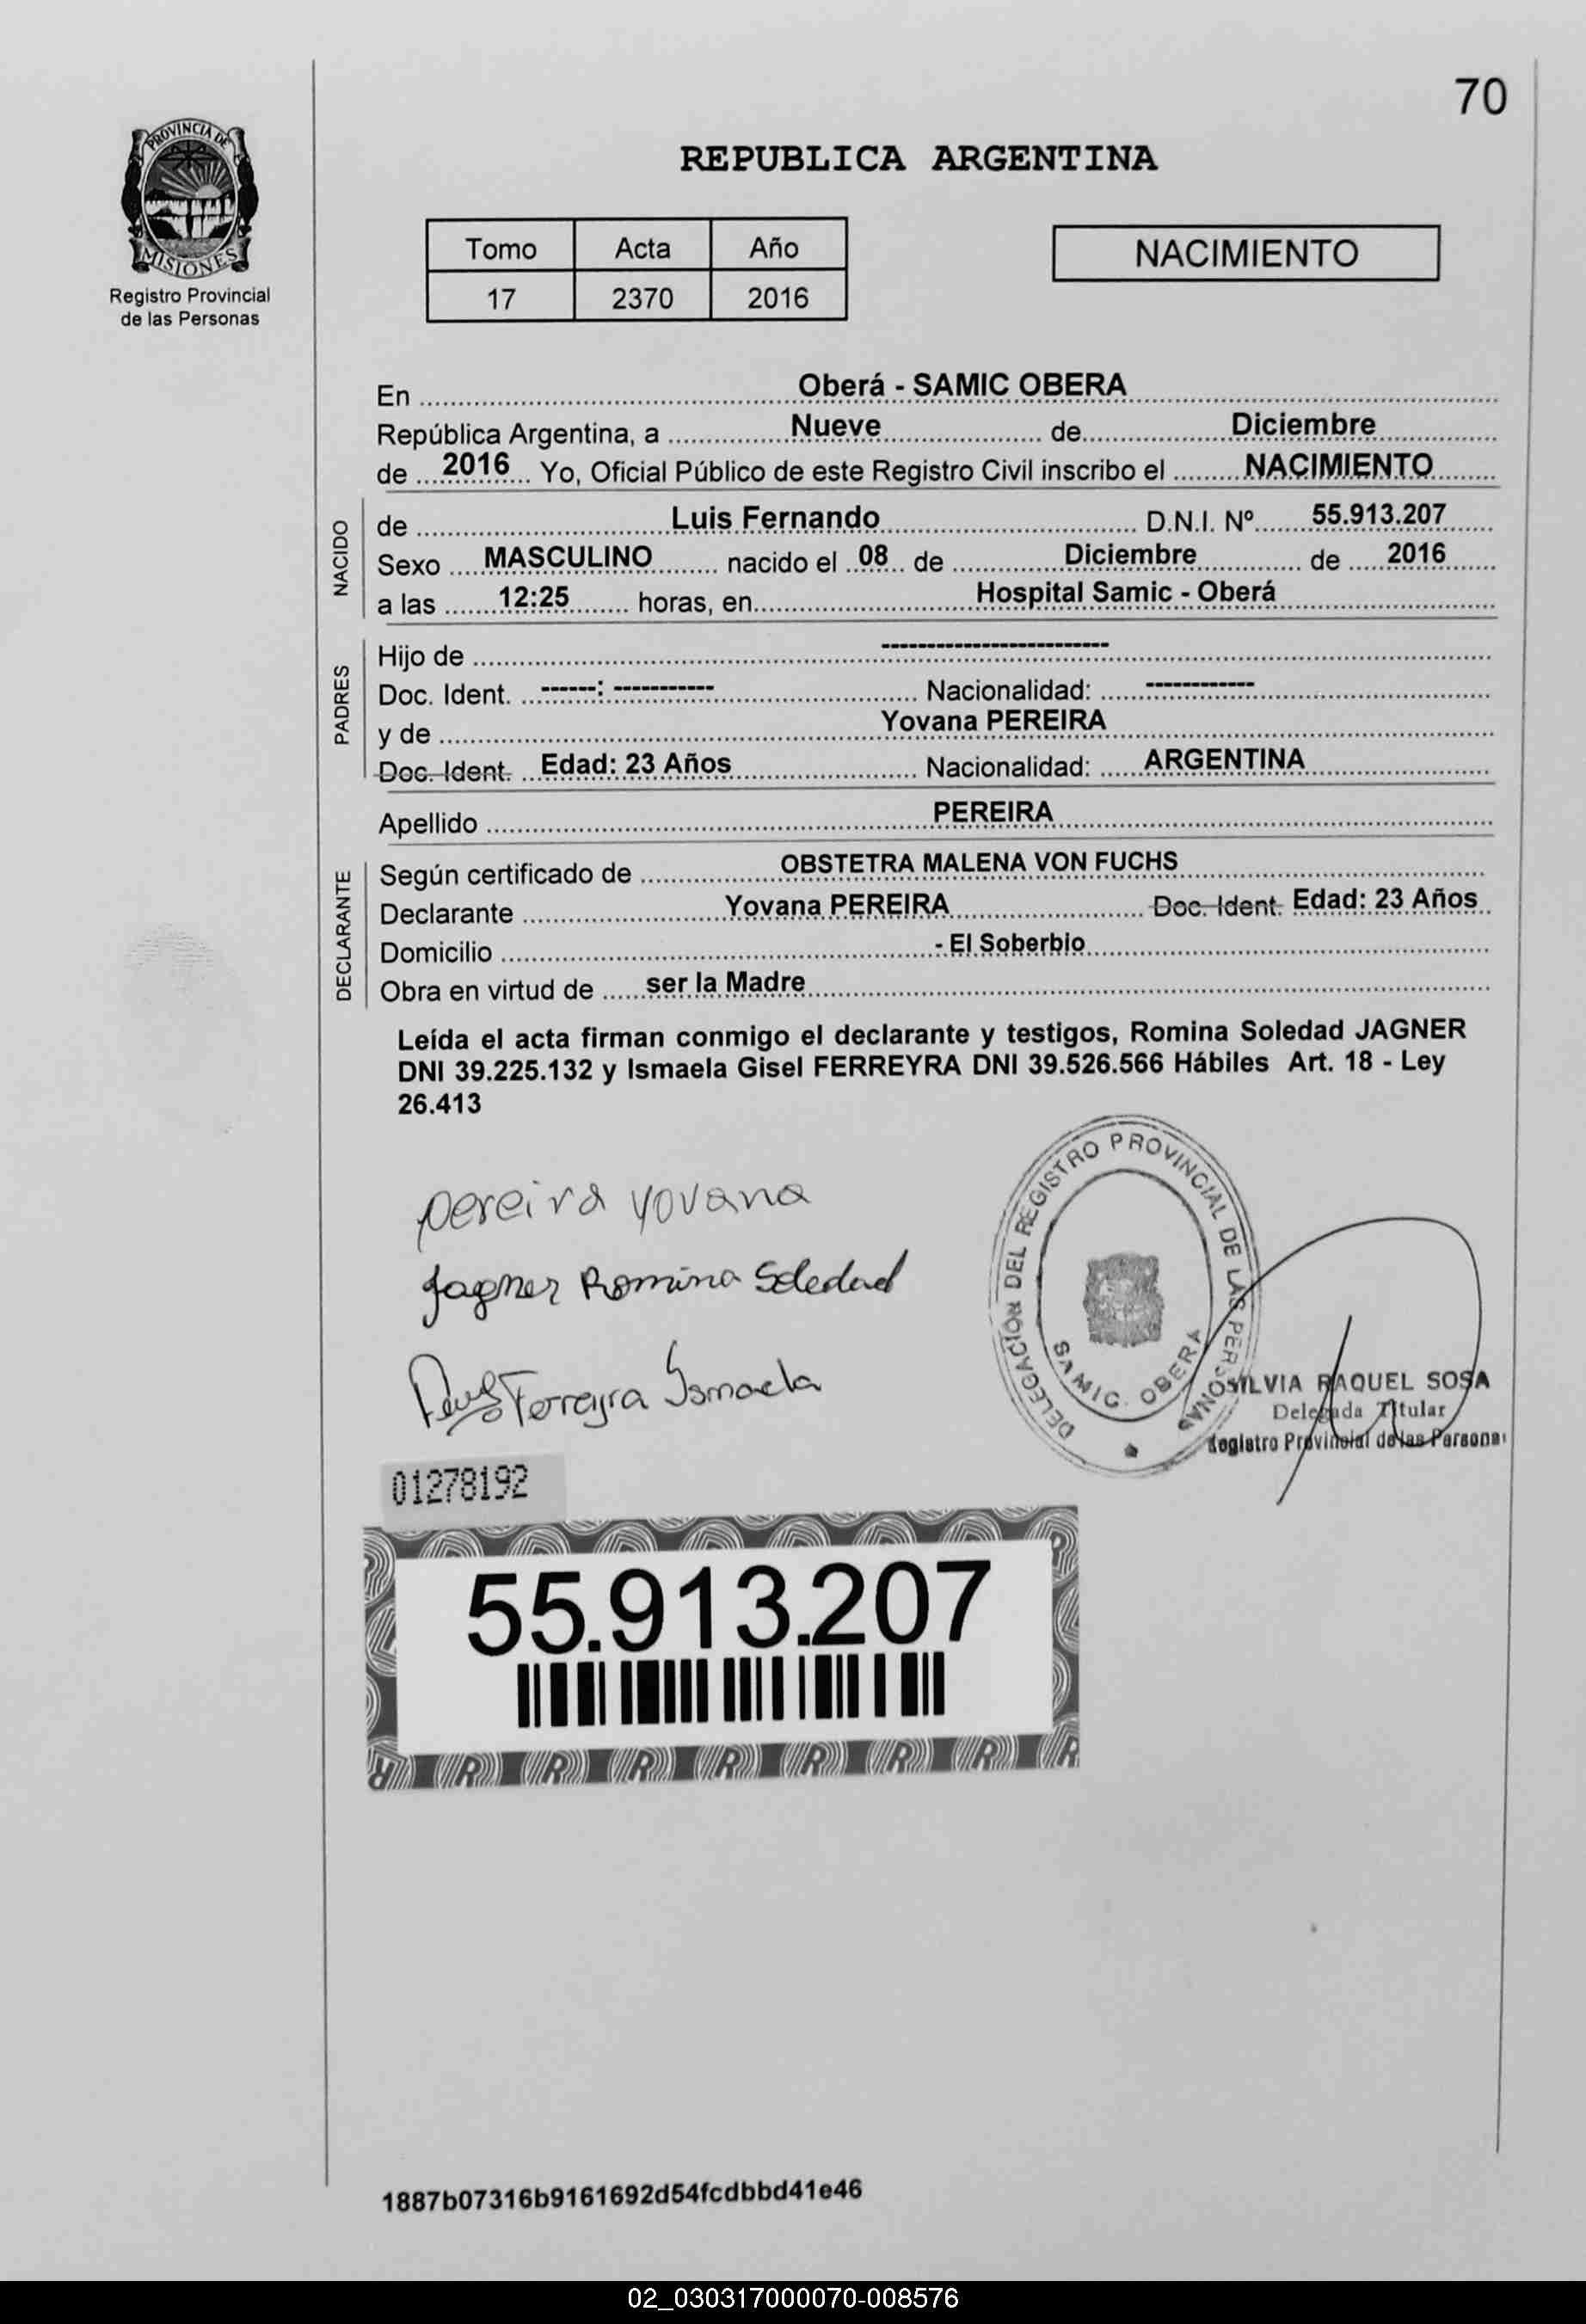 70
PROVINCIA DE
MISIONES
Registro Provincial
de las Personas
REPUBLICA ARGENTINA
Tomo Acta Año
17 2370 2016
NACIMIENTO
En Oberá - SAMIC OBERA
República Argentina, a Nueve de Diciembre
de 2016 Yo, Oficial Público de este Registro Civil inscribo el NACIMIENTO
NACIDO
de Luis Fernando D.N.I. Nº 55.913.207
Sexo MASCULINO nacido el 08 de Diciembre de 2016
a las 12:25 horas, en Hospital Samic - Oberá
PADRES
Hijo de -------------------------
Doc. Ident. ------: ----------- Nacionalidad: ------------
y de Yovana PEREIRA
Doc. Ident. Edad: 23 Años Nacionalidad: ARGENTINA
Apellido PEREIRA
DECLARANTE
Según certificado de OBSTETRA MALENA VON FUCHS
Declarante Yovana PEREIRA Doc. Ident. Edad: 23 Años
Domicilio - El Soberbio
Obra en virtud de ser la Madre
Leída el acta firman conmigo el declarante y testigos, Romina Soledad JAGNER
DNI 39.225.132 y Ismaela Gisel FERREYRA DNI 39.526.566 Hábiles Art. 18 - Ley
26.413
pereira yovana
Jagner Romina Soledad
Ferreyra Ismaela
DELEGACIÓN DEL REGISTRO PROVINCIAL DE LAS PERSONAS
SAMIC. OBERA
SILVIA RAQUEL SOSA
Delegada Titular
Registro Provincial de las Personas
01278192
55.913.207
R R R R R R R R R
1887b07316b9161692d54fcdbbd41e46
02_030317000070-008576